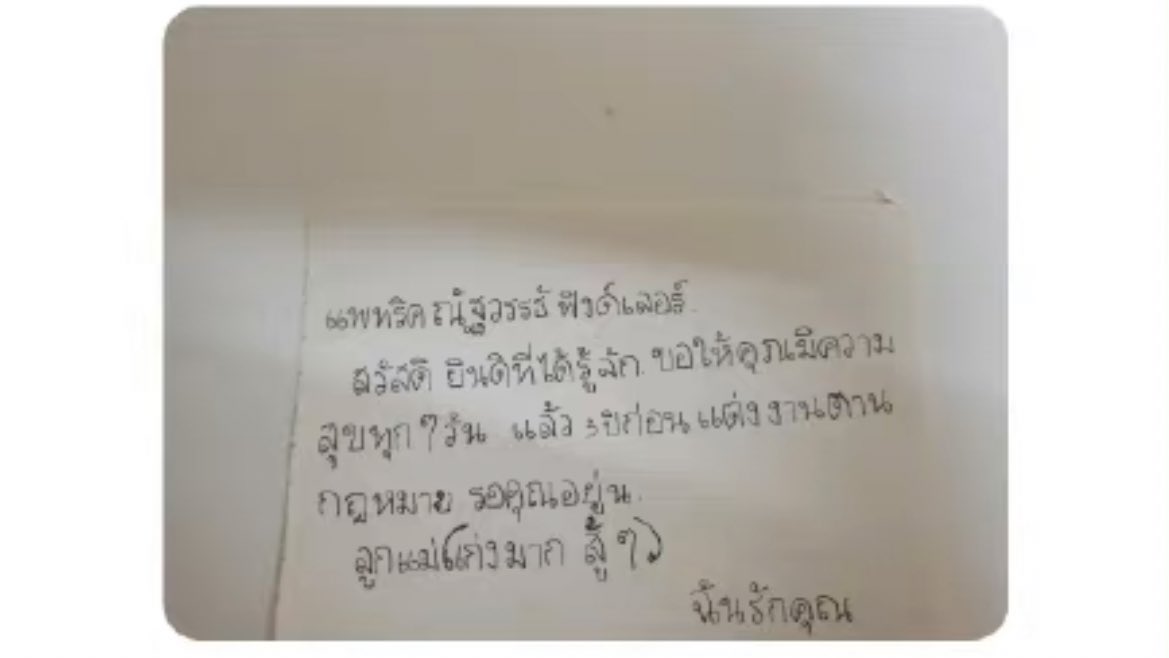 แพทริค ณัฐวรรธ์ ฟิงด์เลอร์.
สวัสดี ยินดีที่ได้รู้จัก. ขอให้คุณมีความ
สุขทุก ๆ วัน แล้ว 3 ปีก่อน แต่งงานตาม
กฎหมาย รอคุณอยู่น.
ลูกแม่(เก่งมาก สู้ ๆ)
ฉันรักคุณ